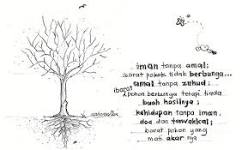 iman tanpa amal;
ibarat pokok tidak berbunga...
amal tanpa zuhud;
ibarat
pokok berbunga tetapi tiada
buah hasilnya;
kehidupan tanpa iman,
doa dan tawakkal;
ibarat pohon yang
mati akar nya